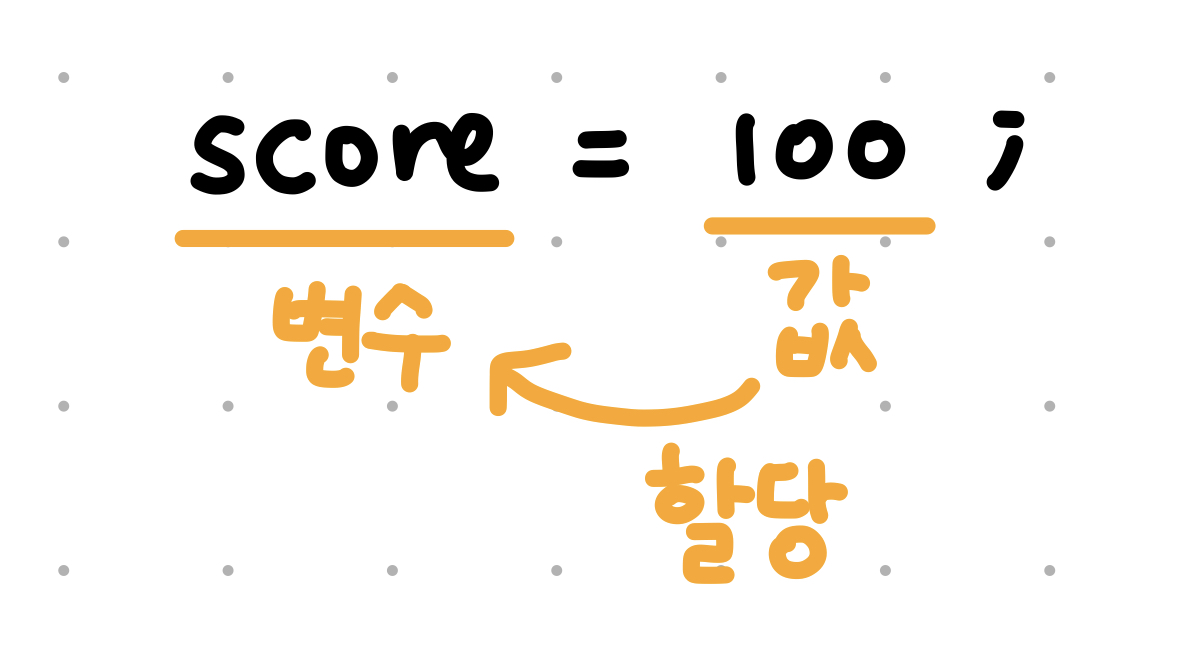 score = 100 ;
변수 값
할당